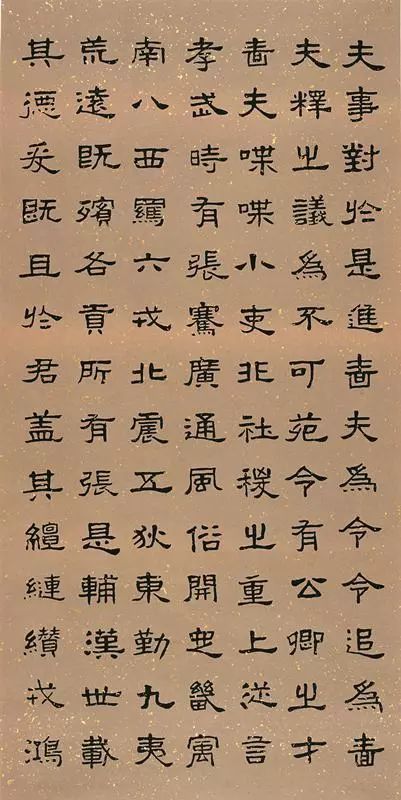 夫事對於是進嗇夫爲令令退爲嗇
夫釋之議爲不可苑令有公卿之才
嗇夫喋喋小吏非社稷之重上從言
孝武時有張騫廣通風俗開定畿寓
南八西羈六戎北震五狄東勤九夷
荒遠既殯各貢所有張是輔漢世載
其德爰既且於君盖其繵縺纘戎鴻